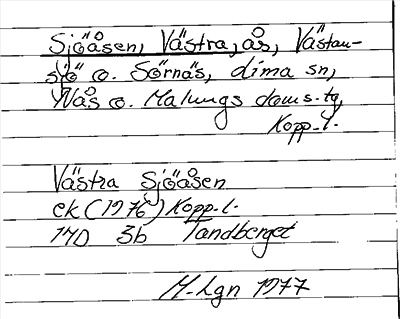 Sjöåsen, Västra, ås, Västan-
sjö o. Sörnäs, Lima sn,
Nås o. Malungs doms.tg,
Kopp.l.
Västra Sjöåsen
ek (1976) Kopp.l.
17D 3b Tandberget
M-Lgn 1977